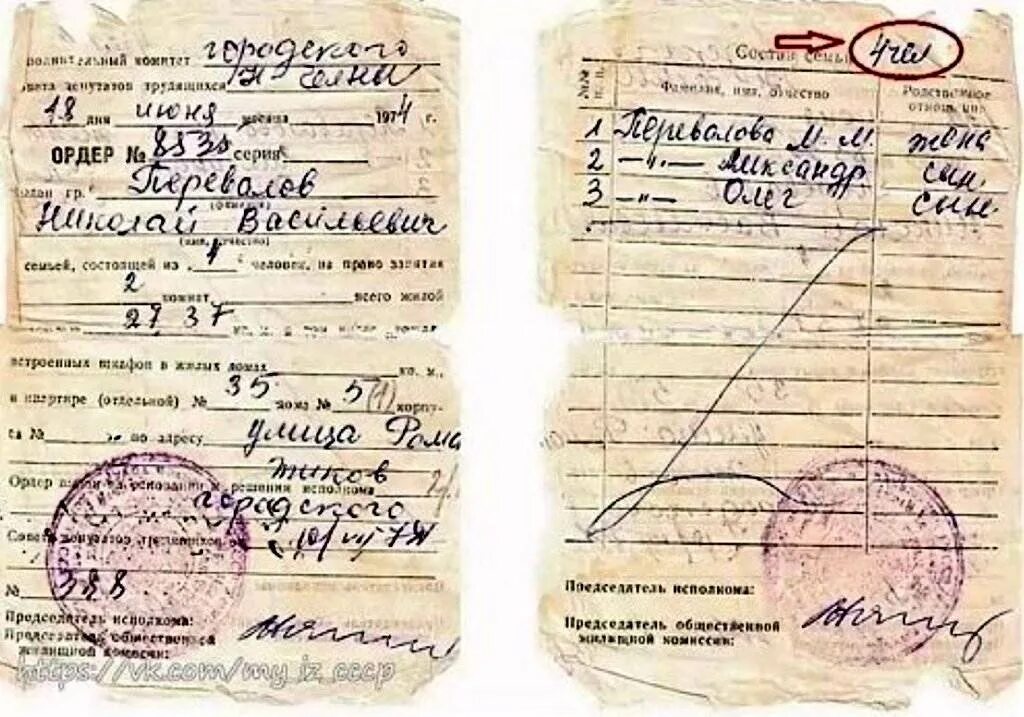 городского
полнительный комитет
Н Челны
вета депутатов трудящихся
18 дня июня месяца 1974 г.
ОРДЕР № серия
Перевалов
Выдан гр.
(фамилия)
Николай Васильевич
(имя, отчество)
семьей, состоящей из человек, на право занятия
2
комнат всего жилой
27 37
встроенных шкафов в жилых домах кв. м.
в квартире (отдельной) № 35 дома № 5 (1) корпу-
са № по адресу улица Рома
тиков
Ордер на основании решения исполкома
городского
Совета депутатов трудящихся от
№ 388
Председатель исполкома:
Председатель общественной
жилищной комиссии:
https://vk.com/my_iz_cccp
Состав семьи 4 чел
№№ п. п.
Фамилия, имя, отчество
Родственное отношение
1 Перевалова М. М. жена
2 —"— Александр сын.
3 —"— Олег сын.
Председатель исполкома:
Председатель общественной
жилищной комиссии: